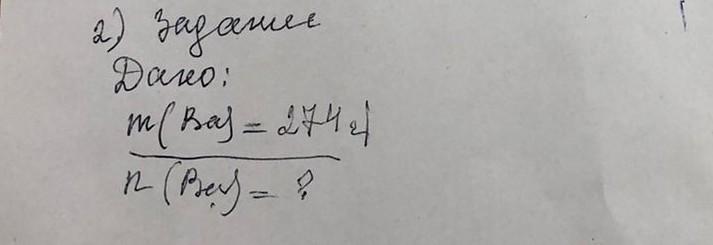 2) Задание
Дано:
m(Ba) = 274 г
n(Ba) = ?